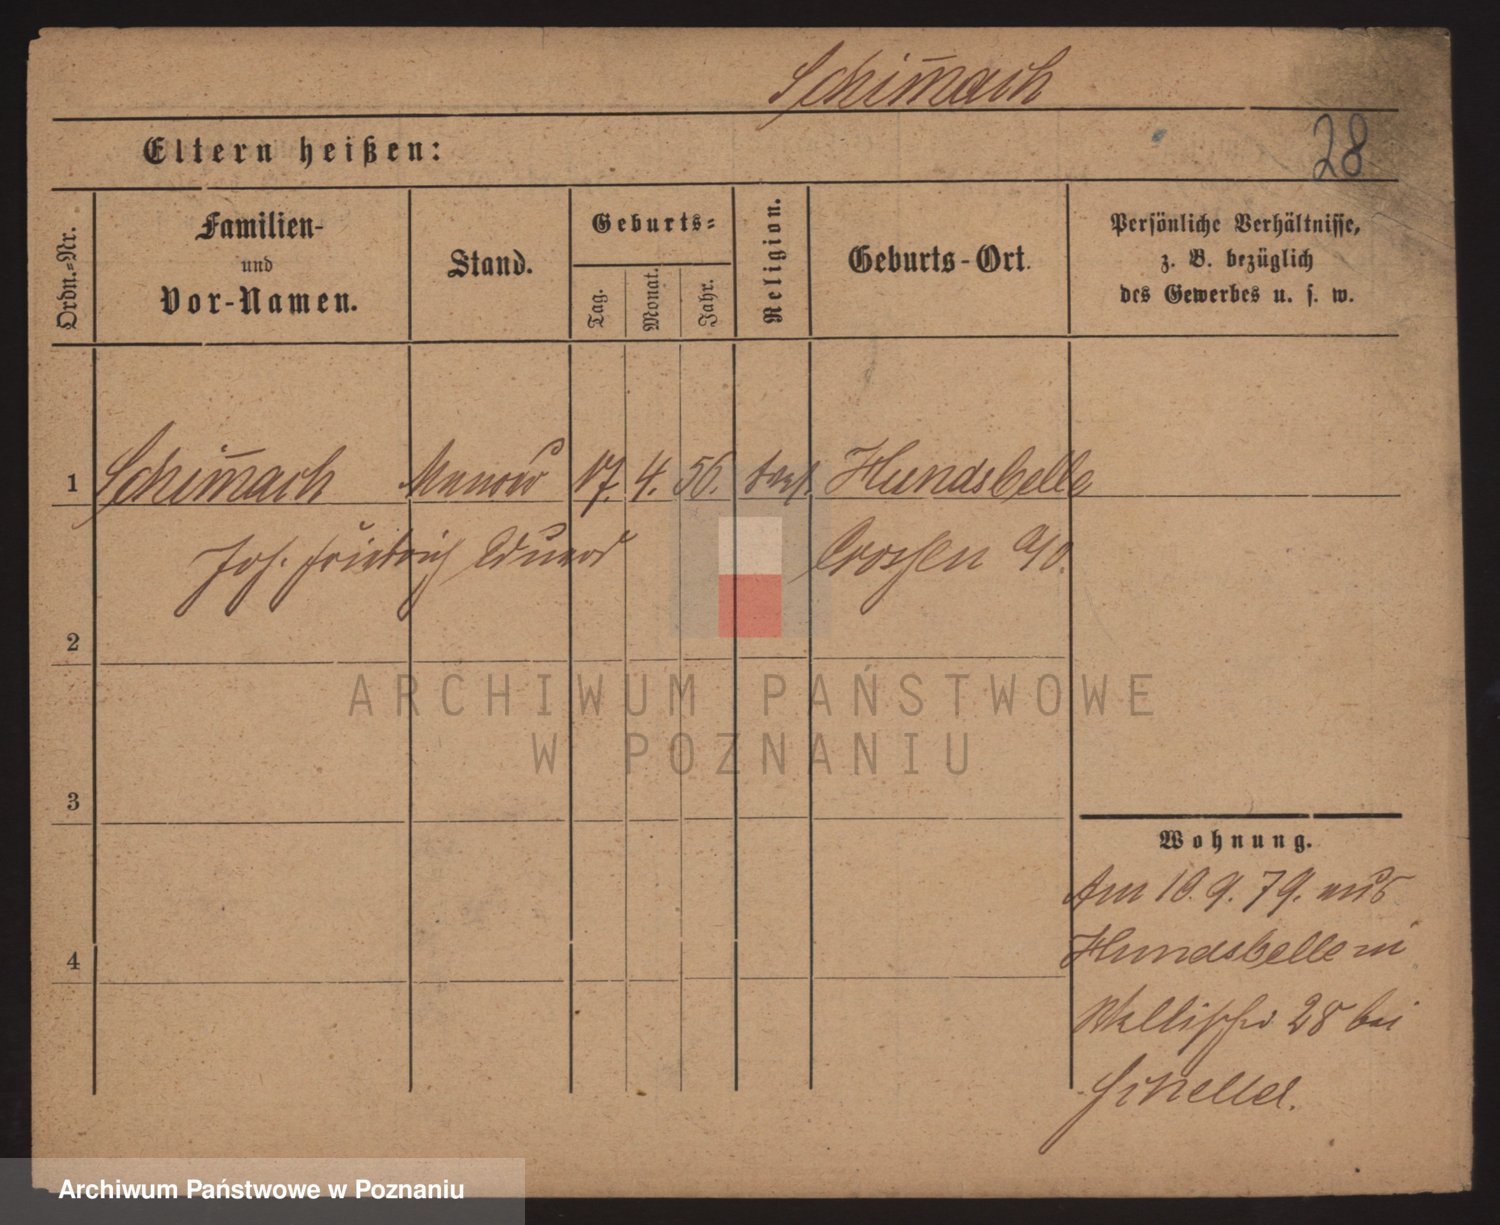 Schimach
28
Eltern heißen:
Ordn.-Nr.
Familien-
und
Vor-Namen.
Stand.
Geburts-
Tag.
Monat.
Jahr.
Religion.
Geburts-Ort.
Persönliche Verhältnisse,
z. B. bezüglich
des Gewerbes u. s. w.
1 Schimach Maurer 17. 4. 56. Hundsbelle
Joh. Friedrich Eduard Crossen a/O.
2
ARCHIWUM PAŃSTWOWE
W POZNANIU
3
Wohnung.
Am 10. 9. 79. aus
4
Hundsbelle in
Wallischei 28 bei
Archiwum Państwowe w Poznaniu